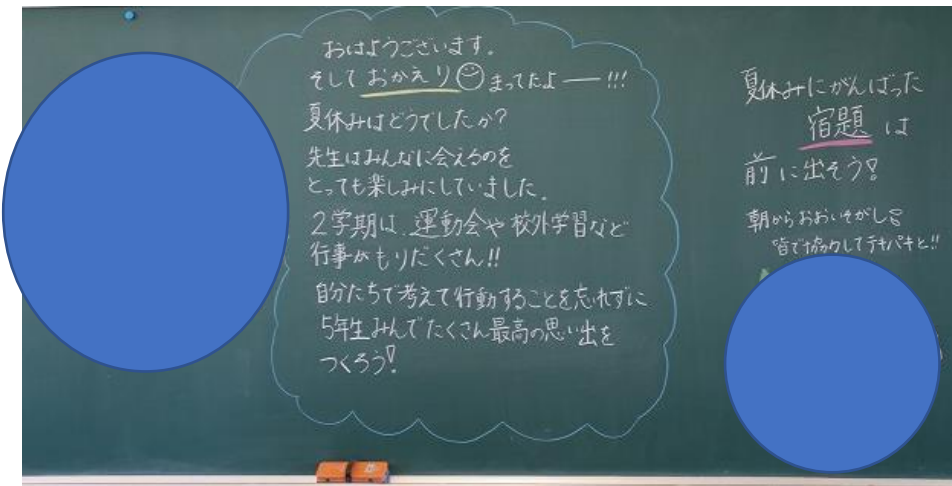 おはようございます。
そしておかえり☺まってたよー!!!
夏休みはどうでしたか?
先生はみんなに会えるのを
とっても楽しみにしていました。
2学期は、運動会や校外学習など
行事がもりだくさん!!
自分たちで考えて行動することを忘れずに
5年生みんなでたくさん最高の思い出を
つくろう!
夏休みにがんばった
宿題は
前に出そう!
朝からおおいそがし!
皆で協力してテキパキと!!